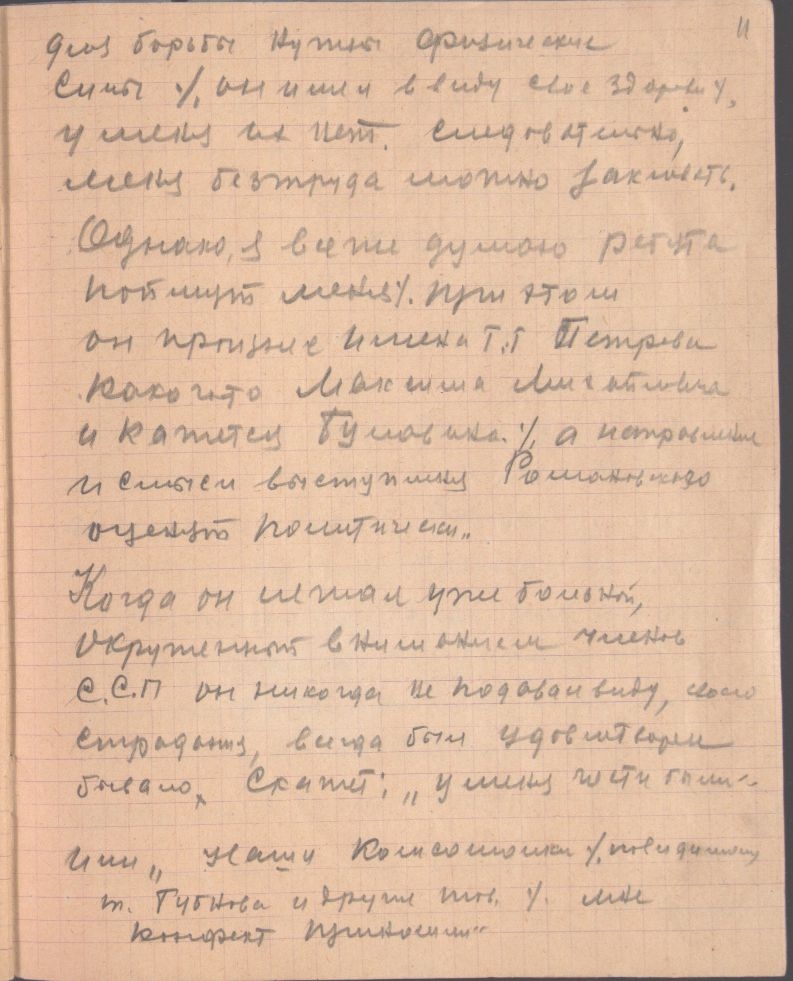 11
для борьбы нужны физические
силы %, он имел ввиду свое здоровь %,
у меня их нет. Следовательно,
меня безтруда можно заклевать.
Однако, я все же думаю ребята
поймут меня %. При этом
он произнес имена т.т Петрова
какого то Максима Михайловича
и кажется Буловика. %, а направление
и смысл выступления Романовского
оценят политически„
Когда он лежал уже больной,
окруженный вниманием членов
С.С.П он никогда не подавал виду, своего
страдания, всегда был удовлетворен
бывало, скажет: „у меня гости были"
или „наши комсомолки %, повидимому
т. Губнова и другие тов. %. мне
конфект приносили"